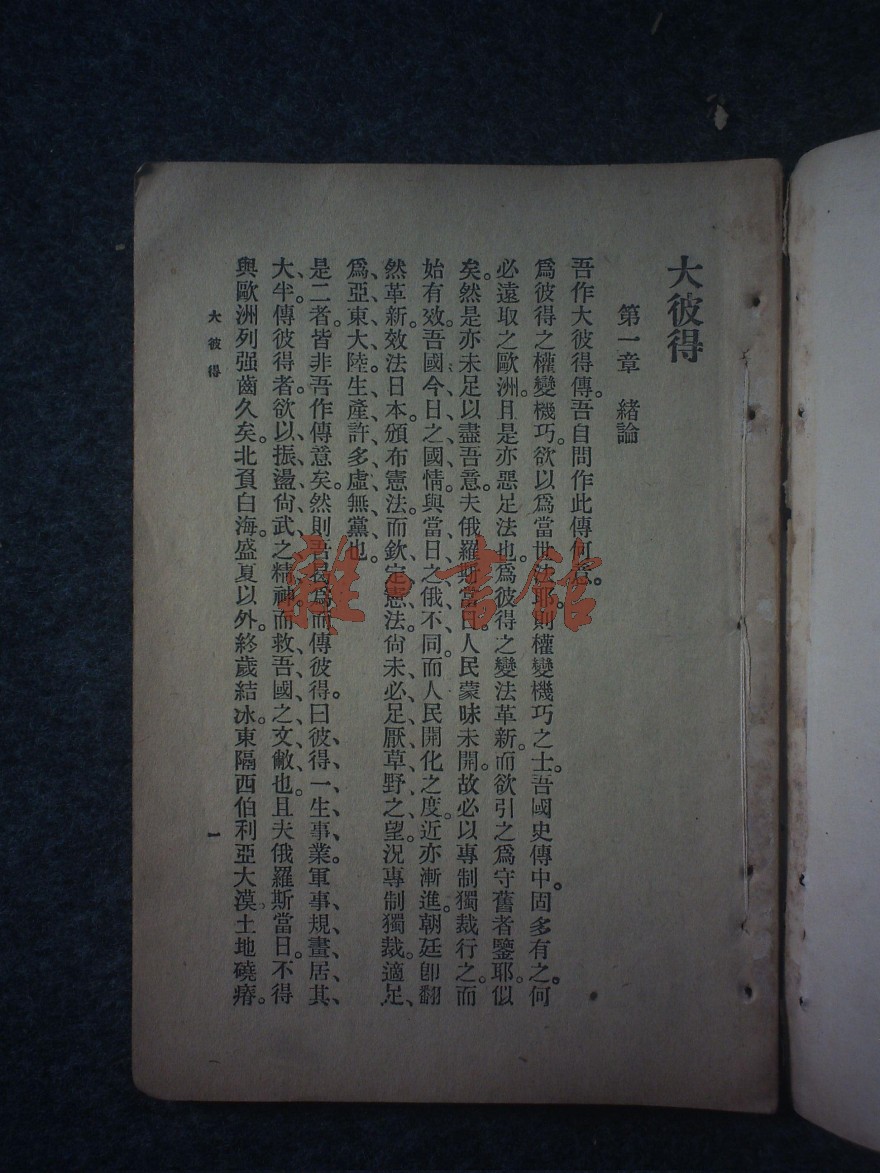 大彼得
第一章 緒論
吾作大彼得傳。吾自問作此傳何意。
爲彼得之權變機巧。欲以爲當世法耶。則權變機巧之士。吾國史傳中。固多有之。何
必遠取之歐洲。且是亦惡足法也。爲彼得之變法革新。而欲引之爲守舊者鑒耶。似
矣。然是亦未足以盡吾意。夫俄羅斯當日。人民蒙昧未開。故必以專制獨裁行之。而
始有效。吾國今日之國情。與當日之俄不同。而人民開化之度。近亦漸進。朝廷卽翻
然革新。效法日本。頒布憲法。而欽定憲法。尙未必足厭草野之望。況專制獨裁。適足、
爲、亞、東、大、陸、生、產、許、多、虛、無、黨、也。
是二者。皆非吾作傳意矣。然則吾曷爲而傳彼得。曰彼、得、一、生、事、業。軍、事、規、畫、居、其、
大、半。傳彼得者。欲以、振、盪、尙、武、之、精、神、而、救、吾、國、之、文、敝、也。且夫俄羅斯當日。不得
與歐洲列强齒久矣。北負白海。盛夏以外。終歲結冰。東隔西伯利亞大漠。土地磽瘠。
大彼得
一
雜·書館